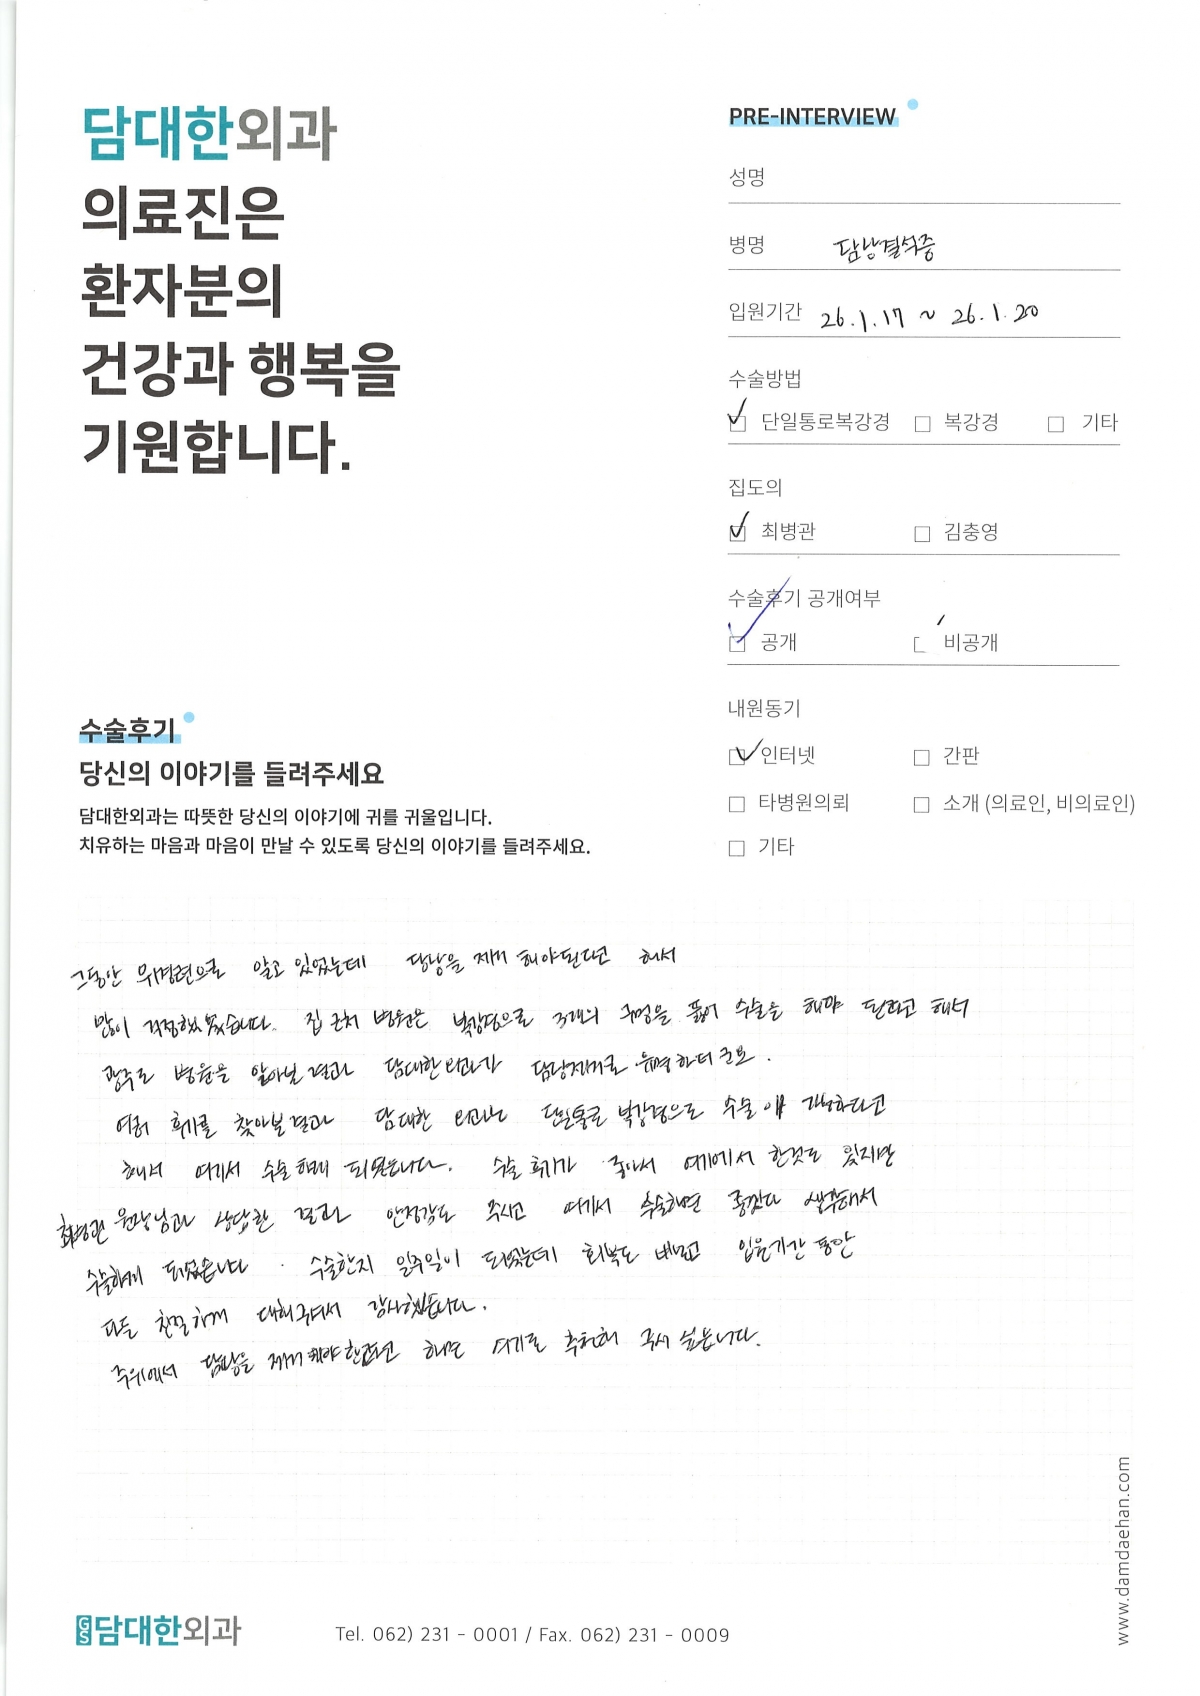 담대한외과
의료진은
환자분의
건강과 행복을
기원합니다.
PRE-INTERVIEW
성명
병명 담낭결석증
입원기간 26.1.17 ~ 26.1.20
수술방법
단일통로복강경 복강경 기타
집도의
최병관 김충영
수술후기 공개여부
공개 비공개
내원동기
인터넷 간판
타병원의뢰 소개 (의료인, 비의료인)
기타
수술후기
당신의 이야기를 들려주세요
담대한외과는 따뜻한 당신의 이야기에 귀를 귀울입니다.
치유하는 마음과 마음이 만날 수 있도록 당신의 이야기를 들려주세요.
그동안 위경련으로 알고 있었는데 담낭을 제거 해야된다고 해서
많이 걱정했었습니다. 집 근처 병원은 복강경으로 3개의 구멍을 뚫어 수술을 해야 된다고 해서
광주로 병원을 알아본 결과 담대한외과가 담낭제거로 유명하더군요.
여러 후기를 찾아본 결과 담대한 외과는 단일통로 복강경으로 수술이 가능하다고
해서 여기서 수술하게 되었습니다. 수술 후기가 좋아서 여기에서 한것도 있지만
최병관 원장님과 상담한 결과 안정감도 주시고 여기서 수술하면 좋겠다 생각해서
수술하게 되었습니다. 수술한지 일주일이 되었는데 회복도 빠르고 입원기간 동안
다들 친절하게 대해주셔서 감사했습니다.
주위에서 담낭을 제거해야 한다고 하면 여기로 추천해 주시 싶습니다.
GS 담대한외과
Tel. 062) 231 - 0001 / Fax. 062) 231 - 0009
www.damdaehan.com